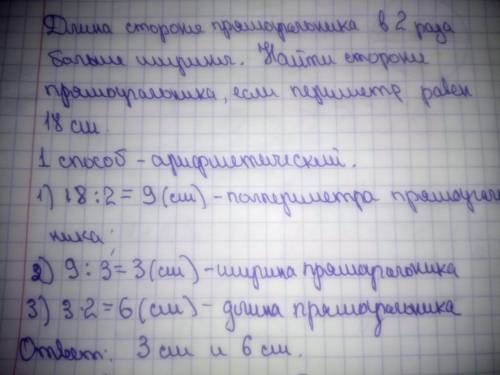 Длина стороны прямоугольника в 2 раза
больше ширины. Найти стороны
прямоугольника, если периметр равен
18 см.
1 способ - арифметический.
1) 18 : 2 = 9 (см) - полпериметра прямоуголь
ника;
2) 9 : 3 = 3 (см) - ширина прямоугольника
3) 3 · 2 = 6 (см) - длина прямоугольника
Ответ: 3 см и 6 см.